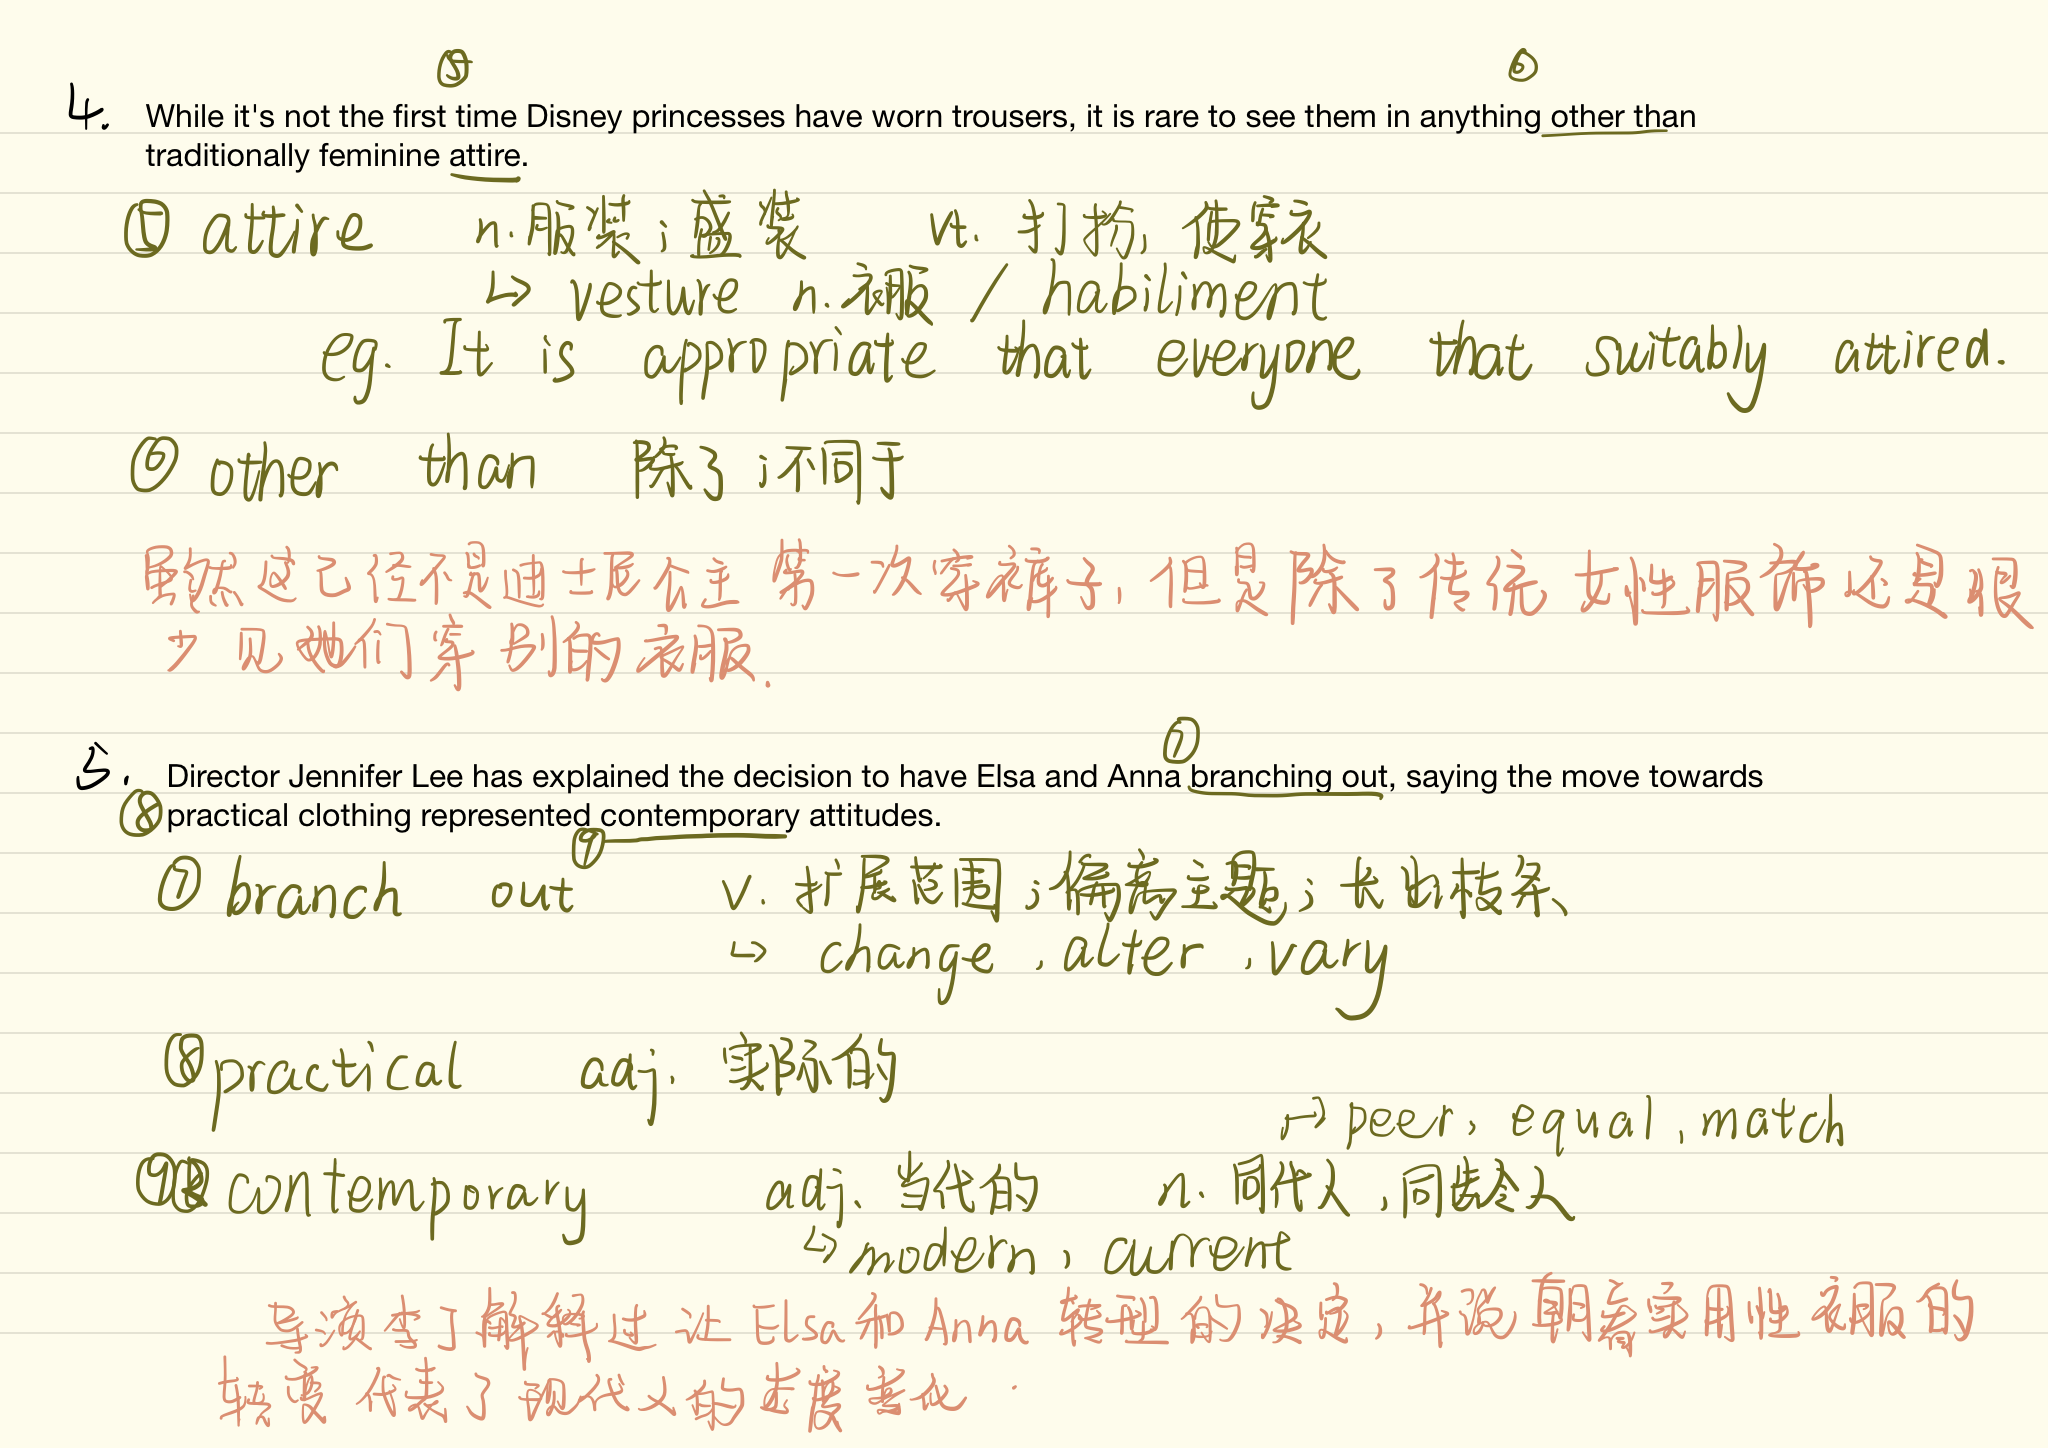 ⑤ ⑥
4. While it's not the first time Disney princesses have worn trousers, it is rare to see them in anything other than
traditionally feminine attire.
⑤ attire n. 服装；盛装 vt. 打扮，使穿衣
↳ vesture n. 衣服 / habiliment
eg. It is appropriate that everyone that suitably attired.
⑥ other than 除了；不同于
虽然这已经不是迪士尼公主第一次穿裤子，但是除了传统女性服饰还是很
少见她们穿别的衣服.
⑦
5. Director Jennifer Lee has explained the decision to have Elsa and Anna branching out, saying the move towards
⑧ practical clothing represented contemporary attitudes.
⑨
⑦ branch out v. 扩展范围；偏离主题；长出枝条、
↳ change, alter, vary
⑧ practical adj. 实际的
↦ peer, equal, match
⑨ contemporary adj. 当代的 n. 同代人，同龄人
↳ modern, current
导演李丁解释过让Elsa和Anna转型的决定，并说朝着实用性衣服的
转变代表了现代人的态度变化.